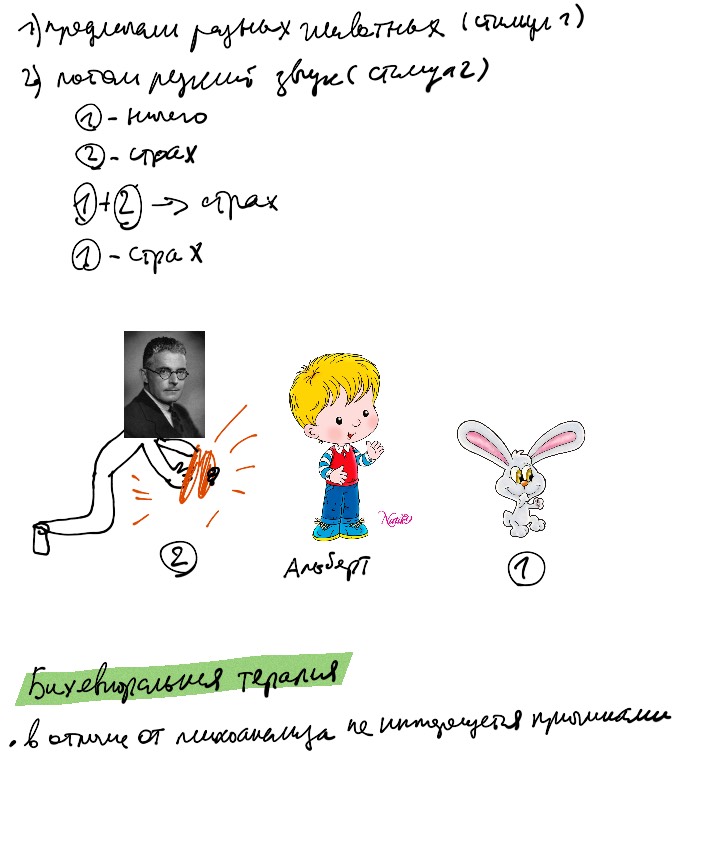 1) предлагали разных животных (стимул 1)
2) потом резкий звук (стимул 2)
① - ничего
② - страх
① + ② → страх
① - страх
②
Альберт
①
Бихевиоральная терапия
• в отличие от психоанализа не интересуется причинами